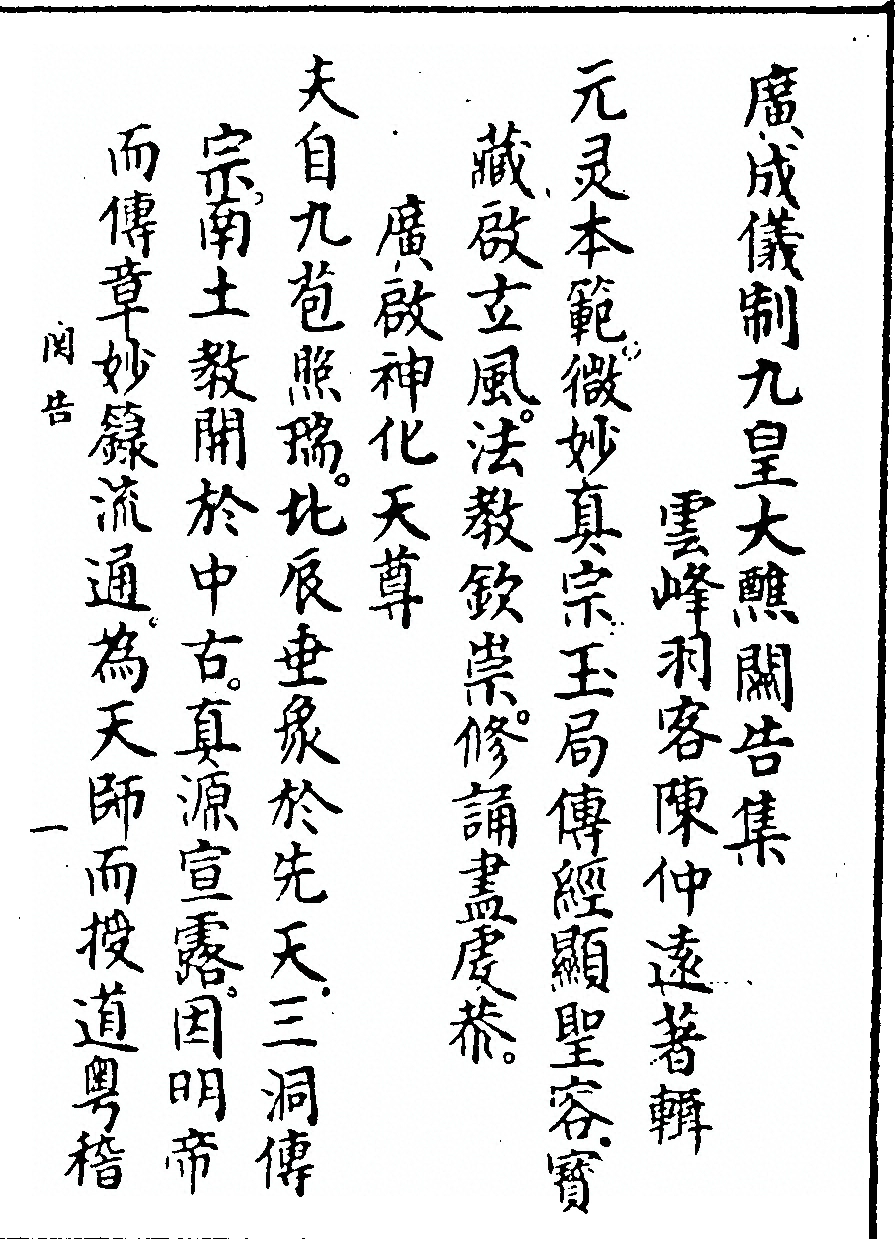 廣成儀制九皇大醮関告集
雲峰羽客陳仲遠著輯
元灵本範。微妙真宗玉局傳經顯聖容。寳
藏啟玄風。法教欽崇。修誦盡虔恭。
廣啟神化天尊
夫自九苞照瑞。北辰垂象於先天。三洞傳
宗。南土教開於中古。真源宣露。因明帝
而傳章妙籙流通。為天師而授道粤稽
関告
一